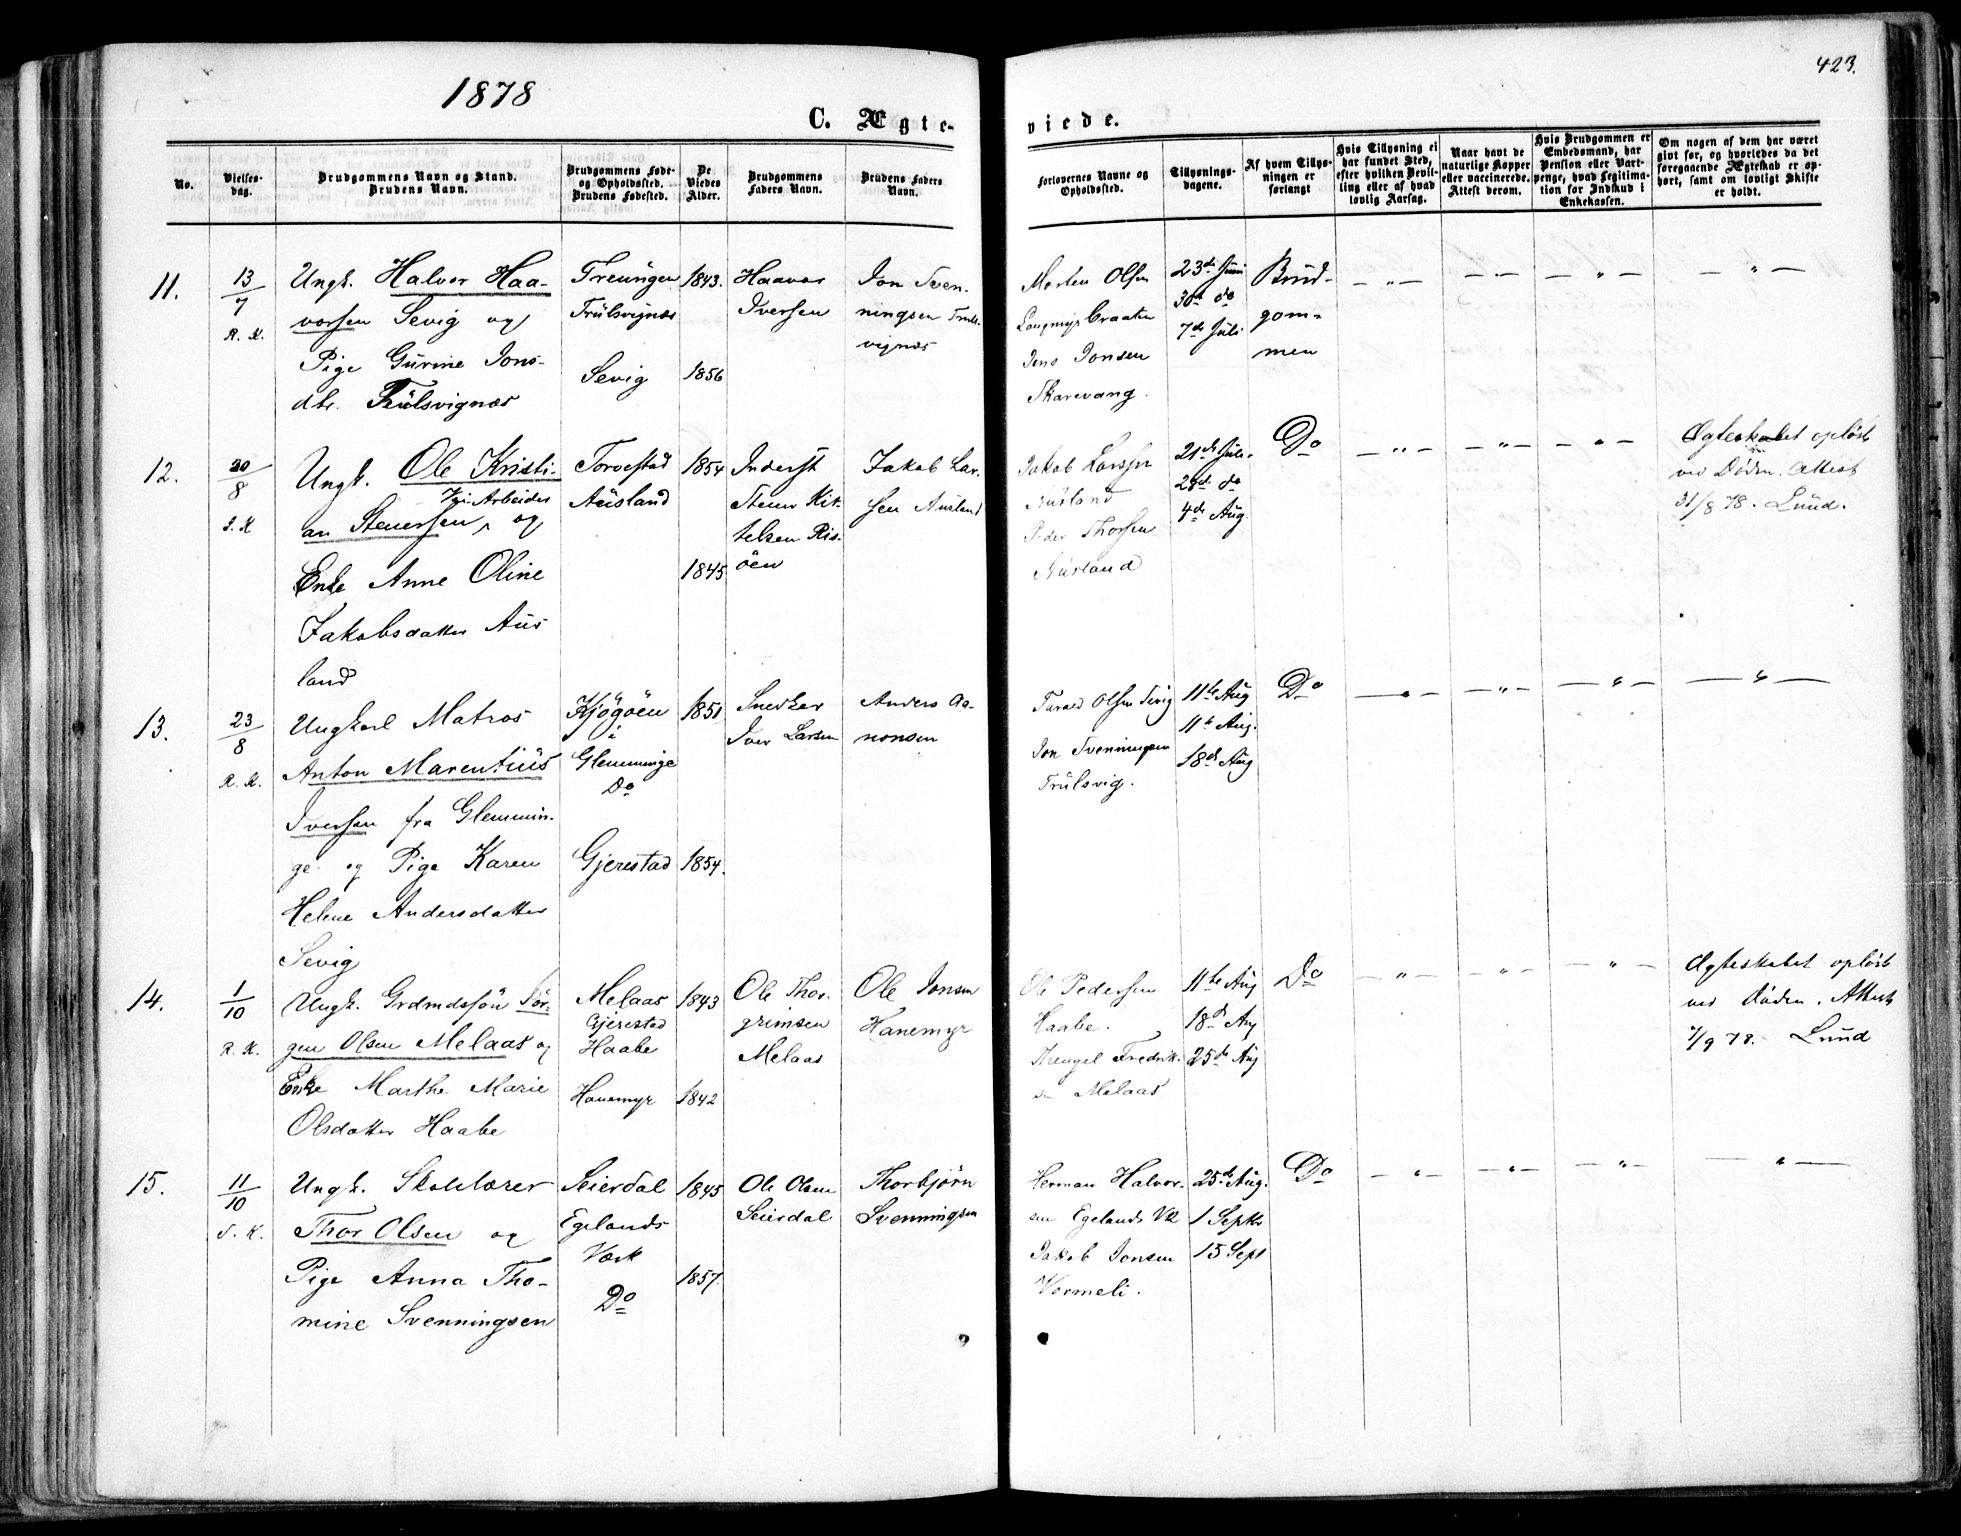 1878
423.
C. Ægte-
viede.
No.
Vielses-
dag.
Brudgommens Navn og Stand.
Brudens Navn.
Brudgommens Føde-
og Opholdssted.
Brudens Fødested.
De
Viedes
Alder.
Brudgommens
Faders Navn.
Brudens Faders
Navn.
Forlovernes Navne og
Opholdssted.
Tillysnings-
dagene.
Af hvem Tillys-
ningen er
forlangt
Hvis Tillysning ei
har fundet Sted,
efter hvilken Bevil-
ling eller af hvad
lovlig Aarsag.
Naar havt de
naturlige Kopper
eller vaccinerede.
Attest derom.
Hvis Brudgommen er
Embedsmand, har
Pension eller Vart-
penge, hvad Legitima-
tion for Indskud i
Enkekassen.
Om nogen af dem har været
givt før, og hvorledes da det
foregaaende Ægteskab er op-
hørt, samt om lovligt Skifte
er holdt.
11.
13/7
R. K.
Ungk. Halvor Haa-
vorsen Sevig og
Pige Gurine Jons-
dtr. Trulsvignæs
Treungen
Trulsvignæs
Sevig
1843.
1856
Haavor
Iversen
Jon Sven-
ningsen Truls-
vignæs
Morten Olsen
Langmyr Braaten
Jens Jonsen
Skarevang.
23de Juni
30te do
7de Juli
Brud-
gom-
men
12.
20/8
S. K
Ungk. Ole Kristi-
Vei-Arbeider
an Stenersen, og
Enke Anne Oline
Jakobsdatter Aus
land
Torvestad
Ausland
1854
1845
Inderst
Stener Kit-
telsen Ris-
öen
Jakob Lar-
sen Ausland
Jakob Larsen
Ausland
Peder Thorsen
Ausland
21de Juli.
28de do
4de Aug.
Do
Ægteskabet opløst
ved Døden. Attest
31/8 78. Lund.
13.
23/8
R. K.
Ungkarl Matros
Anton Marentius
Iversen fra Glemmin-
ge og Pige Karen
Helene Andersdatter
Sevig
Kjøgöen
i
Glemminge
Do
Gjerestad
1851
1854.
Snedker
Iver Larsen
Anders Aa-
nonsen
Tarald Olsen Sevig
Jon Svenningsen
Trulsvig.
11te Aug
11te Aug.
18de Aug
Do
14.
1/10
R. K.
Ungk. Grdmdssøn Jør-
gen Olsen Melaas og
Enke Marthe Marie
Olsdatter Haabe
Melaas
Gjerestad
Haabe
Hanemyr
1843
1842
Ole Thor-
grimsen
Melaas
Ole Jonsen
Hanemyr
Ole Pedersen
Haabe.
Fredrik-
sen Melaas
11te Aug
18de Aug
25de Aug
Do
Ægteskabet opløst
ved Døden. Attest
7/9 78. Lund
15.
11/10
S. K.
Ungk. Skolelærer
Thor Olsen og
Pige Anna Tho-
mine Svenningsen
Seierdal
Egelands
Værk
Do
1845
1857.
Ole Olsen
Seierdal
Thorbjørn
Svenningsen
Herman Halvor-
sen Egelands Vk
Jakob Jonsen
Vormeli.
25de Aug.
1 Septbr
15 Sept
Do